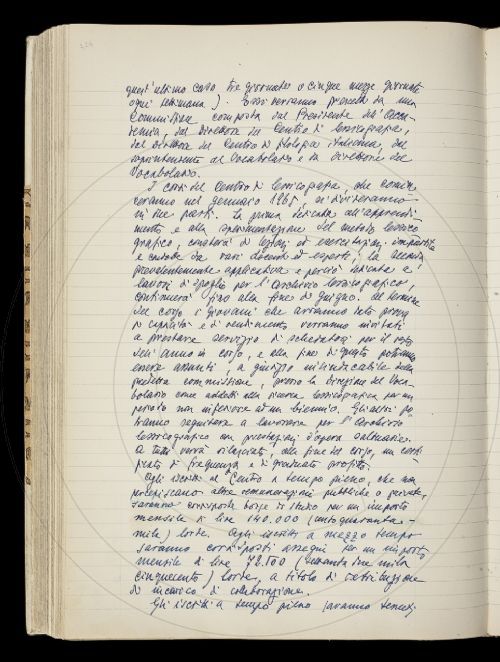 quest'ultimo caso tre giornate o cinque mezze giornate
ogni settimana). Essi verranno prescelti da una
Commissione composta dal Presidente dell'Acca-
demia, dal direttore del Centro di lessicografia,
dal direttore del Centro di filologia italiana, dal
soprintendente al Vocabolario e da direttore del
Vocabolario.
I corsi del Centro di lessicografia, che comin-
ceranno nel gennaio 1965, si divideranno
in due parti. La prima dedicata all'apprendi-
mento e alla sperimentazione del metodo lessico-
grafico, consterà di lezioni ed esercitazioni impartite
e guidate da vari docenti ed esperti; la seconda
prevalentemente applicativa e perciò dedicata a
lavori di spoglio per l'Archivio lessicografico,
continuerà fino alla fine di giugno. Al termine
del corso i giovani che avranno dato prova
di capacità e di rendimento verranno invitati
a prestare servizio di schedatori per il resto
dell'anno in corso, e alla fine di questo potranno
essere assunti, a giudizio insindacabile della
predetta commissione, presso la direzione del Voca-
bolario come addetti alla ricerca lessicografica per un
periodo non inferiore ad un biennio. Gli altri po-
tranno seguitare a lavorare per l'Archivio
lessicografico con prestazioni d'opera saltuarie.
A tutti verrà rilasciato, alla fine del corso, un certi-
ficato di frequenza e di graduato profitto.
Agli iscritti al Centro a tempo pieno, che non
percepiscano altre remunerazioni pubbliche o private,
saranno corrisposte borse di studio per un importo
mensile di lire 140.000 (centoquaranta-
mila) lorde. Agli iscritti a mezzo tempo
saranno corrisposti assegni per un importo
mensile di lire 72.500 (settanta due mila
cinquecento) lorde, a titolo di retribuzione
di incarico di collaborazione.
Gli iscritti a tempo pieno saranno tenuti